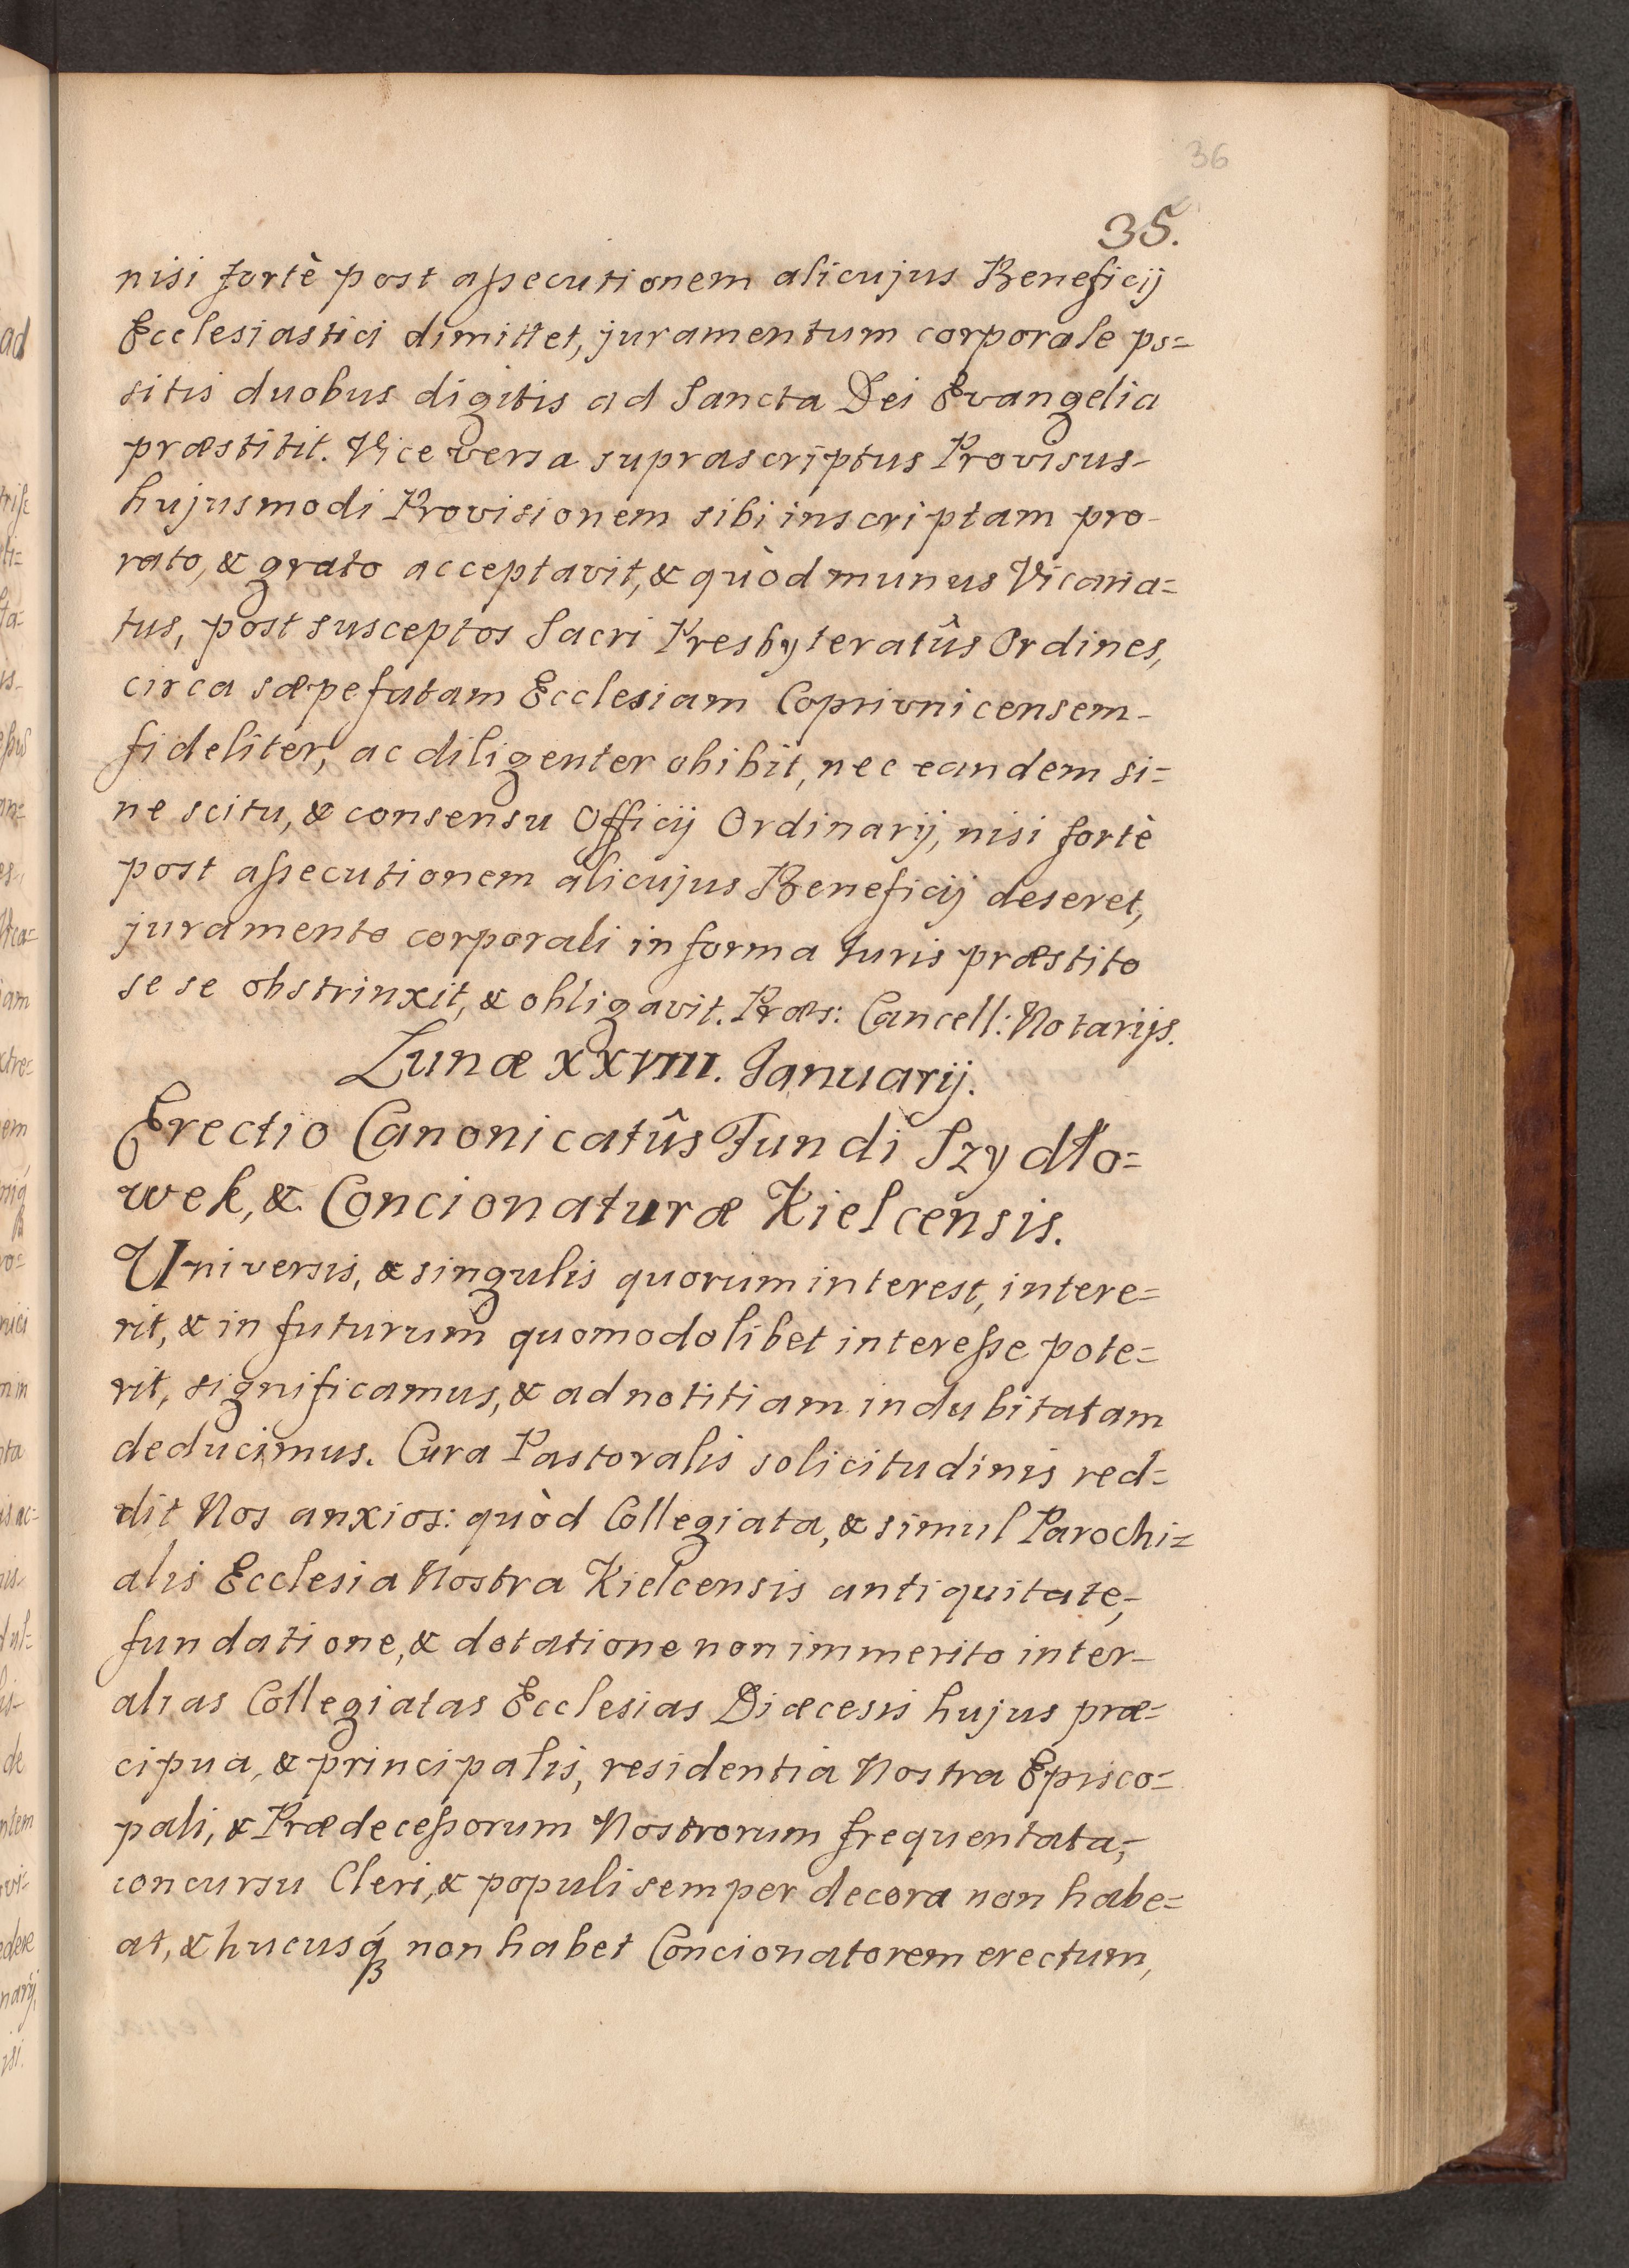 36
35.
nisi fortè post assecutionem alicujus Beneficij
Ecclesiastici dimittet, juramentum corporale po=
sitis duobus digitis ad Sancta Dei Evangelia
præstitit. Vice versa suprascriptus Provisus-
hujusmodi Provisionem sibi inscriptam pro-
rato, & grato acceptavit, & quòd munus Vicaria=
tus, post susceptos Sacri Presbyteratûs Ordines,
circa sæpefatam Ecclesiam Coprivnicensem-
fideliter, ac diligenter obibit, nec eandem si=
ne scitu, & consensu Officij Ordinarij, nisi fortè
post assecutionem alicujus Beneficij deseret,
juramento corporali in forma Iuris præstito
se se obstrinxit, & obligavit. Præs: Cancell: Notarijs.
Lunæ XXVIII. Januarij.
Erectio Canonicatûs Fundi Szydło=
wek, & Concionaturæ Kielcensis.
Universis, & singulis quorum interest, intere=
rit, & in futurum quomodolibet interesse pote=
rit, significamus, & ad notitiam indubitatam
deducimus. Cura Pastoralis solicitudinis red=
dit Nos anxios: quòd Collegiata, & simul Parochi=
alis Ecclesia Nostra Kielcensis antiquitate,-
fundatione, & dotatione non immerito inter-
alias Collegiatas Ecclesias Diæcesis hujus præ=
cipua, & principalis, residentia Nostra Episco=
pali, & Prædecessorum Nostrorum frequentata,-
concursu Cleri, & populi semper decora non habe=
at, & hucusq́ non habet Concionatorem erectum,